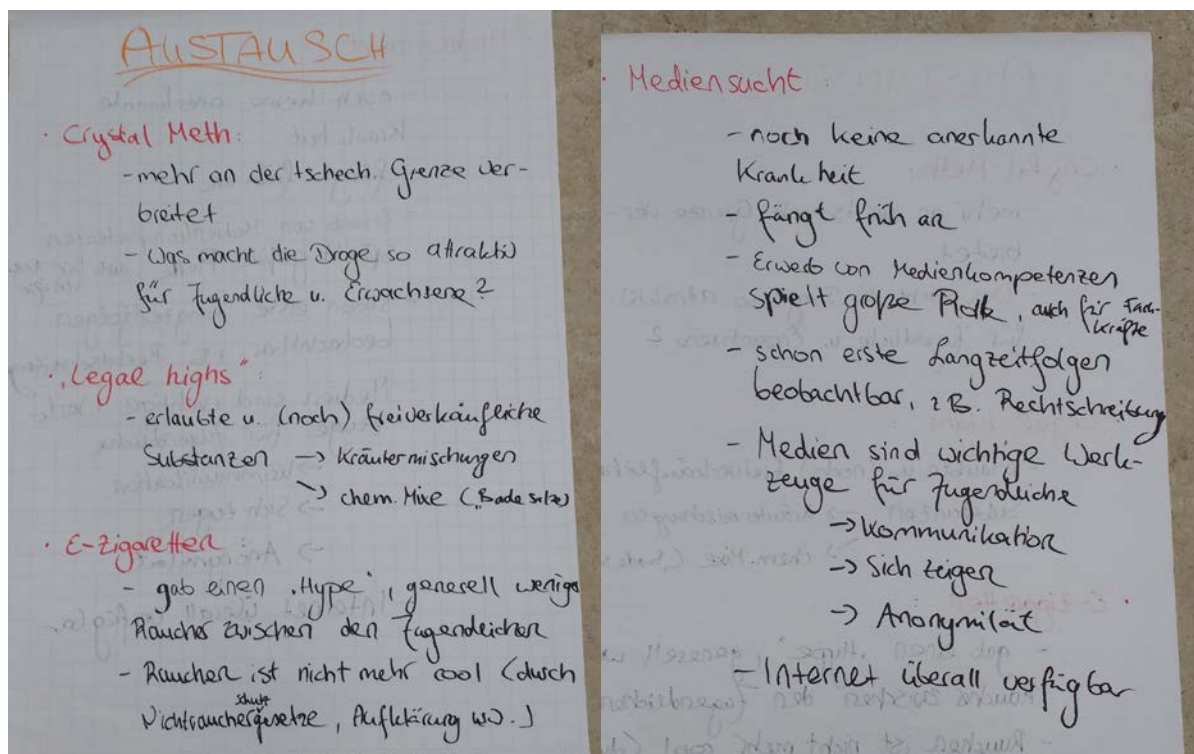 AUSTAUSCH
· Crystal Meth:
- mehr an der tschech. Grenze ver-
breitet
- Was macht die Droge so attraktiv
für Jugendliche u. Erwachsene?
· „Legal highs":
- erlaubte u. (noch) freiverkäufliche
Substanzen → Kräutermischungen
→ chem. Mixe („Badesalze)
· E-Zigaretten:
- gab einen „Hype", generell weniger
Raucher zwischen den Jugendlichen
- Rauchen ist nicht mehr cool (durch
Nichtraucherschutzgesetze, Aufklärung usw.)
· Mediensucht:
- noch keine anerkannte
Krankheit
- fängt früh an
- Erwerb von Medienkompetenzen
spielt große Rolle, auch für Fach-
kräfte
- schon erste Langzeitfolgen
beobachtbar, z.B. Rechtschreibung
- Medien sind wichtige Werk-
zeuge für Jugendliche
→ Kommunikation
→ Sich zeigen
→ Anonymität
- Internet überall verfügbar